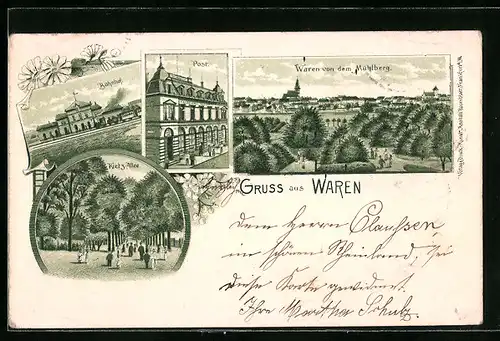 Bahnhof
Post.
Waren von dem Mühlberg.
Kietz Allee
GRUSS aus WAREN
Dem Herrn Claussen,
im schönen Rheinland, sei
diese Karte gewidmet.
Ihre Martha Schulz.